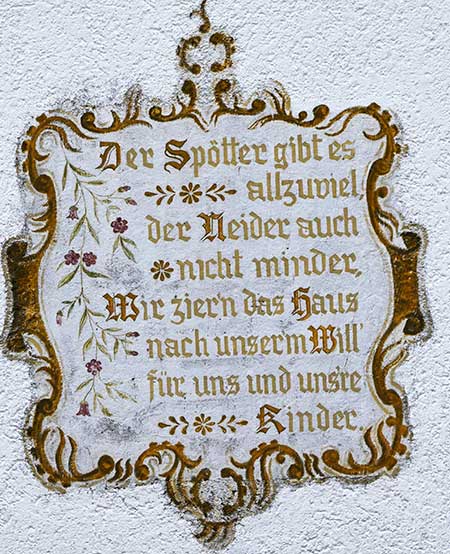 Der Spötter gibt es
allzuviel
der Neider auch
nicht minder,
Wir zier'n das Haus
nach unser'm Will'
für uns und uns're
Kinder.